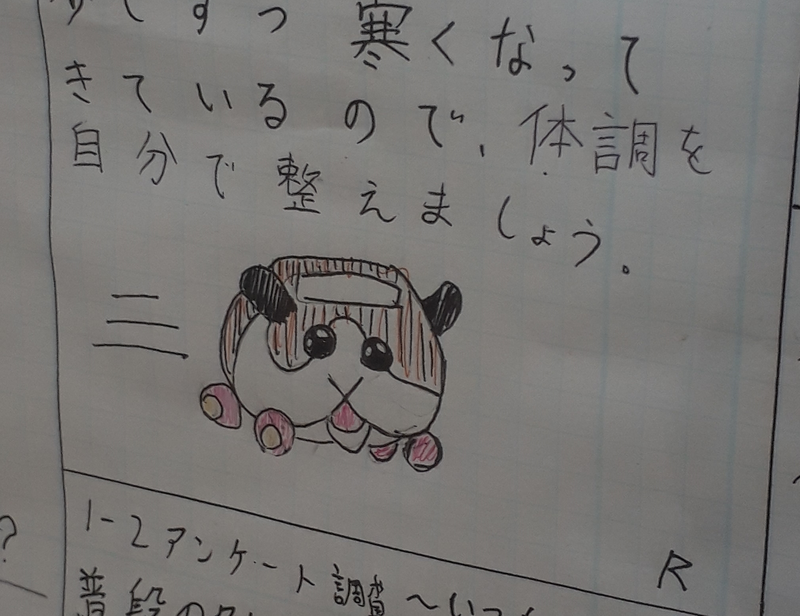 少しずつ寒くなって
きているので、体調を
自分で整えましょう。
R
1-2アンケート調査～いつ
普段の
?